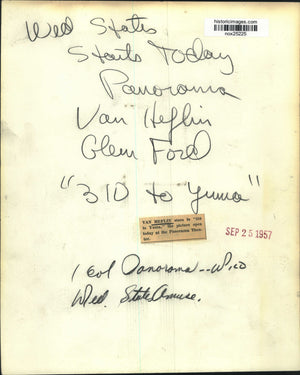 historicimages.com
nox25225
Wed States
Starts Today
Panorama
Van Heflin
Glenn Ford
"310 to Yuma"
VAN HEFLIN stars in "310
to Yuma," the picture open
today at the Panorama Thea-
ter.
SEP 25 1957
1 col Panorama -- Wed
Wed. State Amuse.